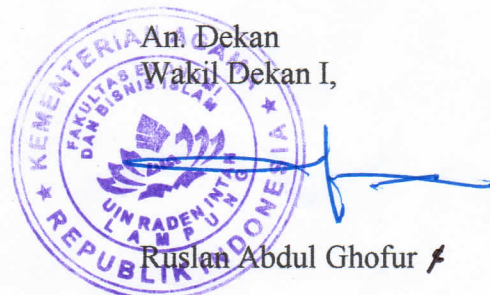 An. Dekan
Wakil Dekan I,
KEMENTERIAN AGAMA
REPUBLIK INDONESIA
FAKULTAS EKONOMI
DAN BISNIS ISLAM
UIN RADEN INTAN
LAMPUNG
Ruslan Abdul Ghofur